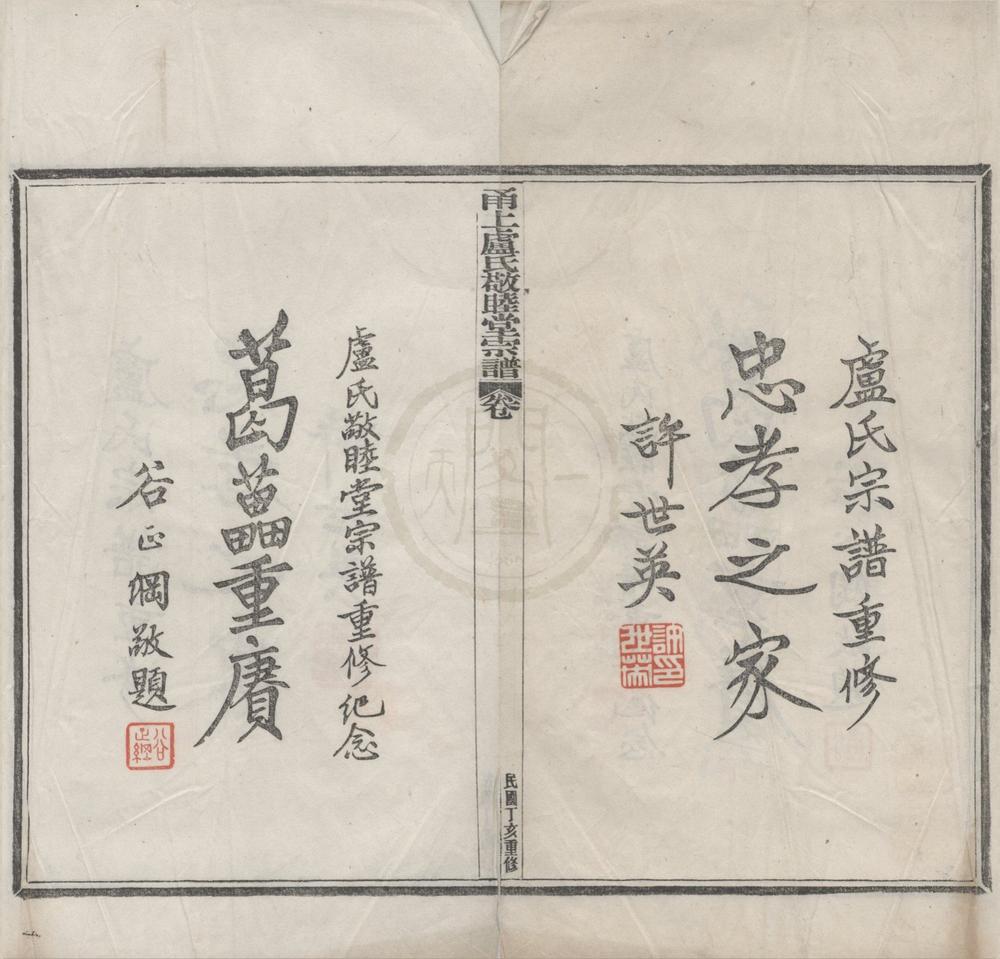 盧氏宗譜重修
忠孝之家
許世英
許世英印
甬上盧氏敬睦堂宗譜
卷
民國丁亥重修
盧氏敬睦堂宗譜重修紀念
葛藟重賡
谷正綱敬題